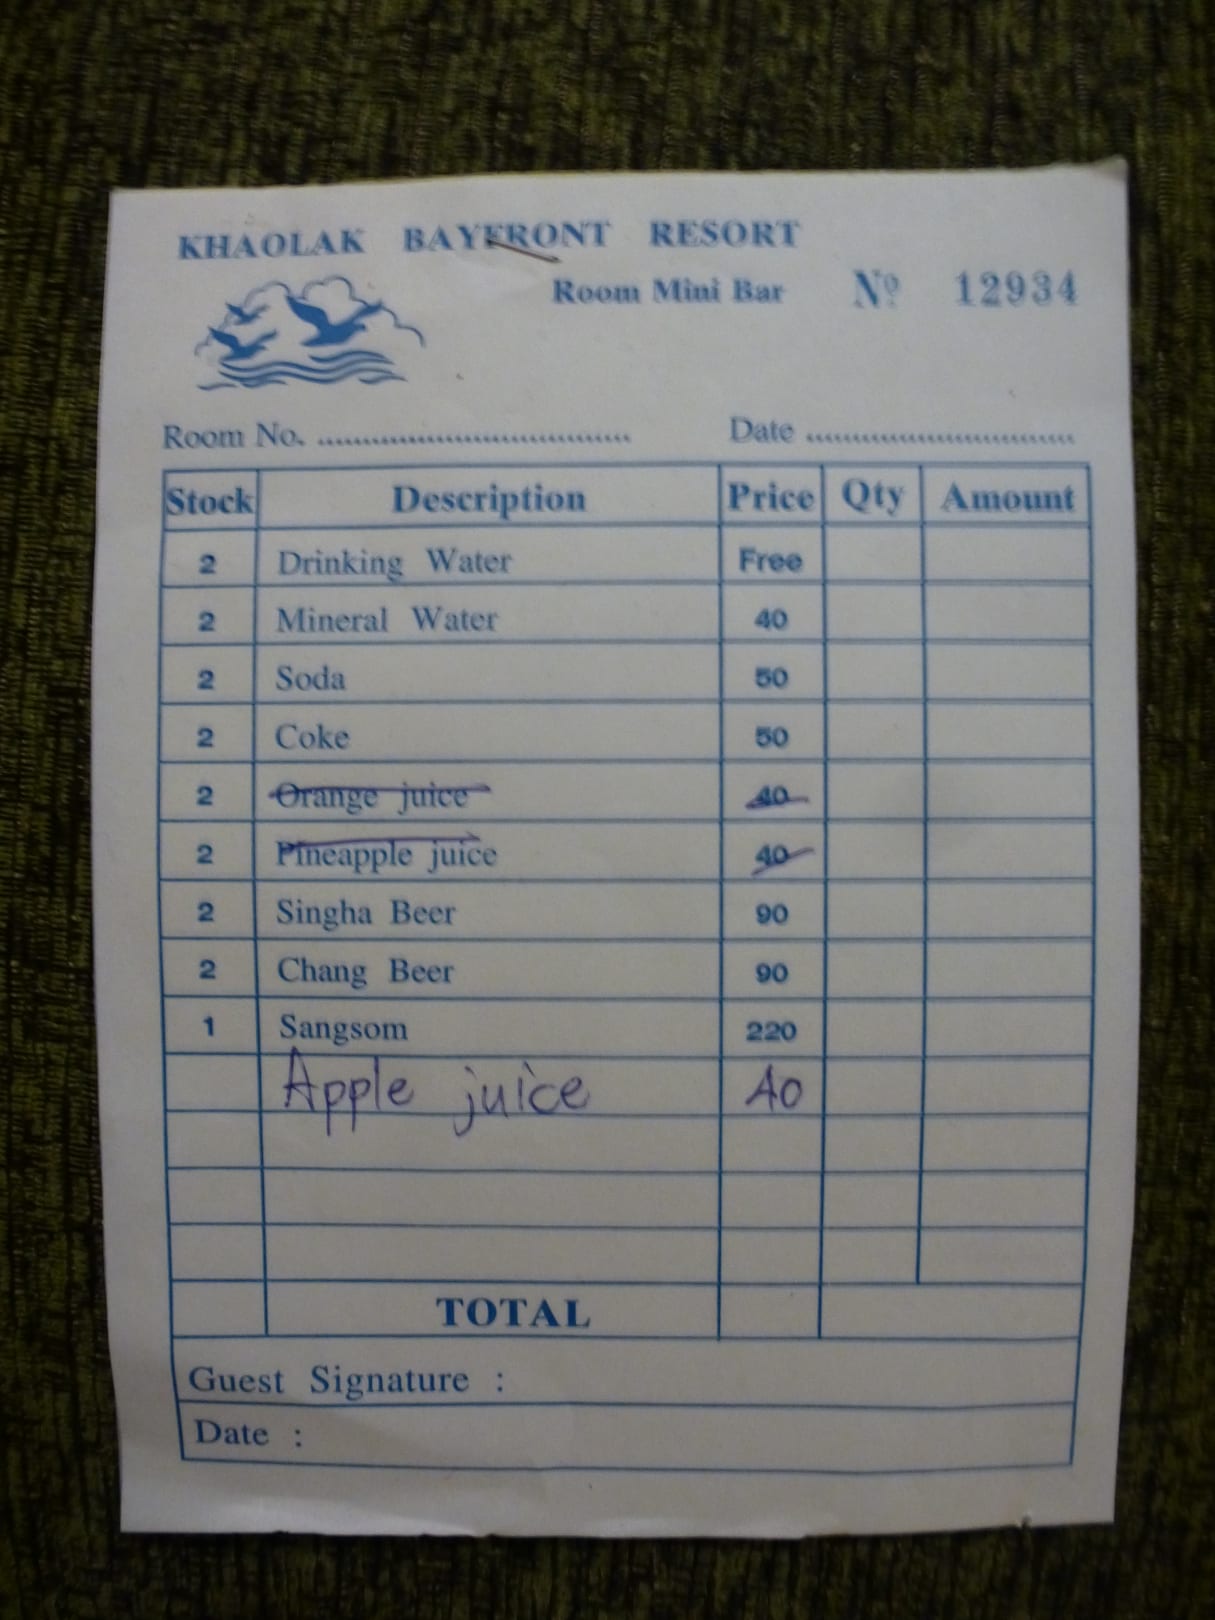 KHAOLAK BAYFRONT RESORT
Room Mini Bar Nº 12934
Room No. .................................. Date ..............................
Stock Description Price Qty Amount
2 Drinking Water Free
2 Mineral Water 40
2 Soda 50
2 Coke 50
2 Orange juice 40
2 Pineapple juice 40
2 Singha Beer 90
2 Chang Beer 90
1 Sangsom 220
Apple juice 40
TOTAL
Guest Signature :
Date :